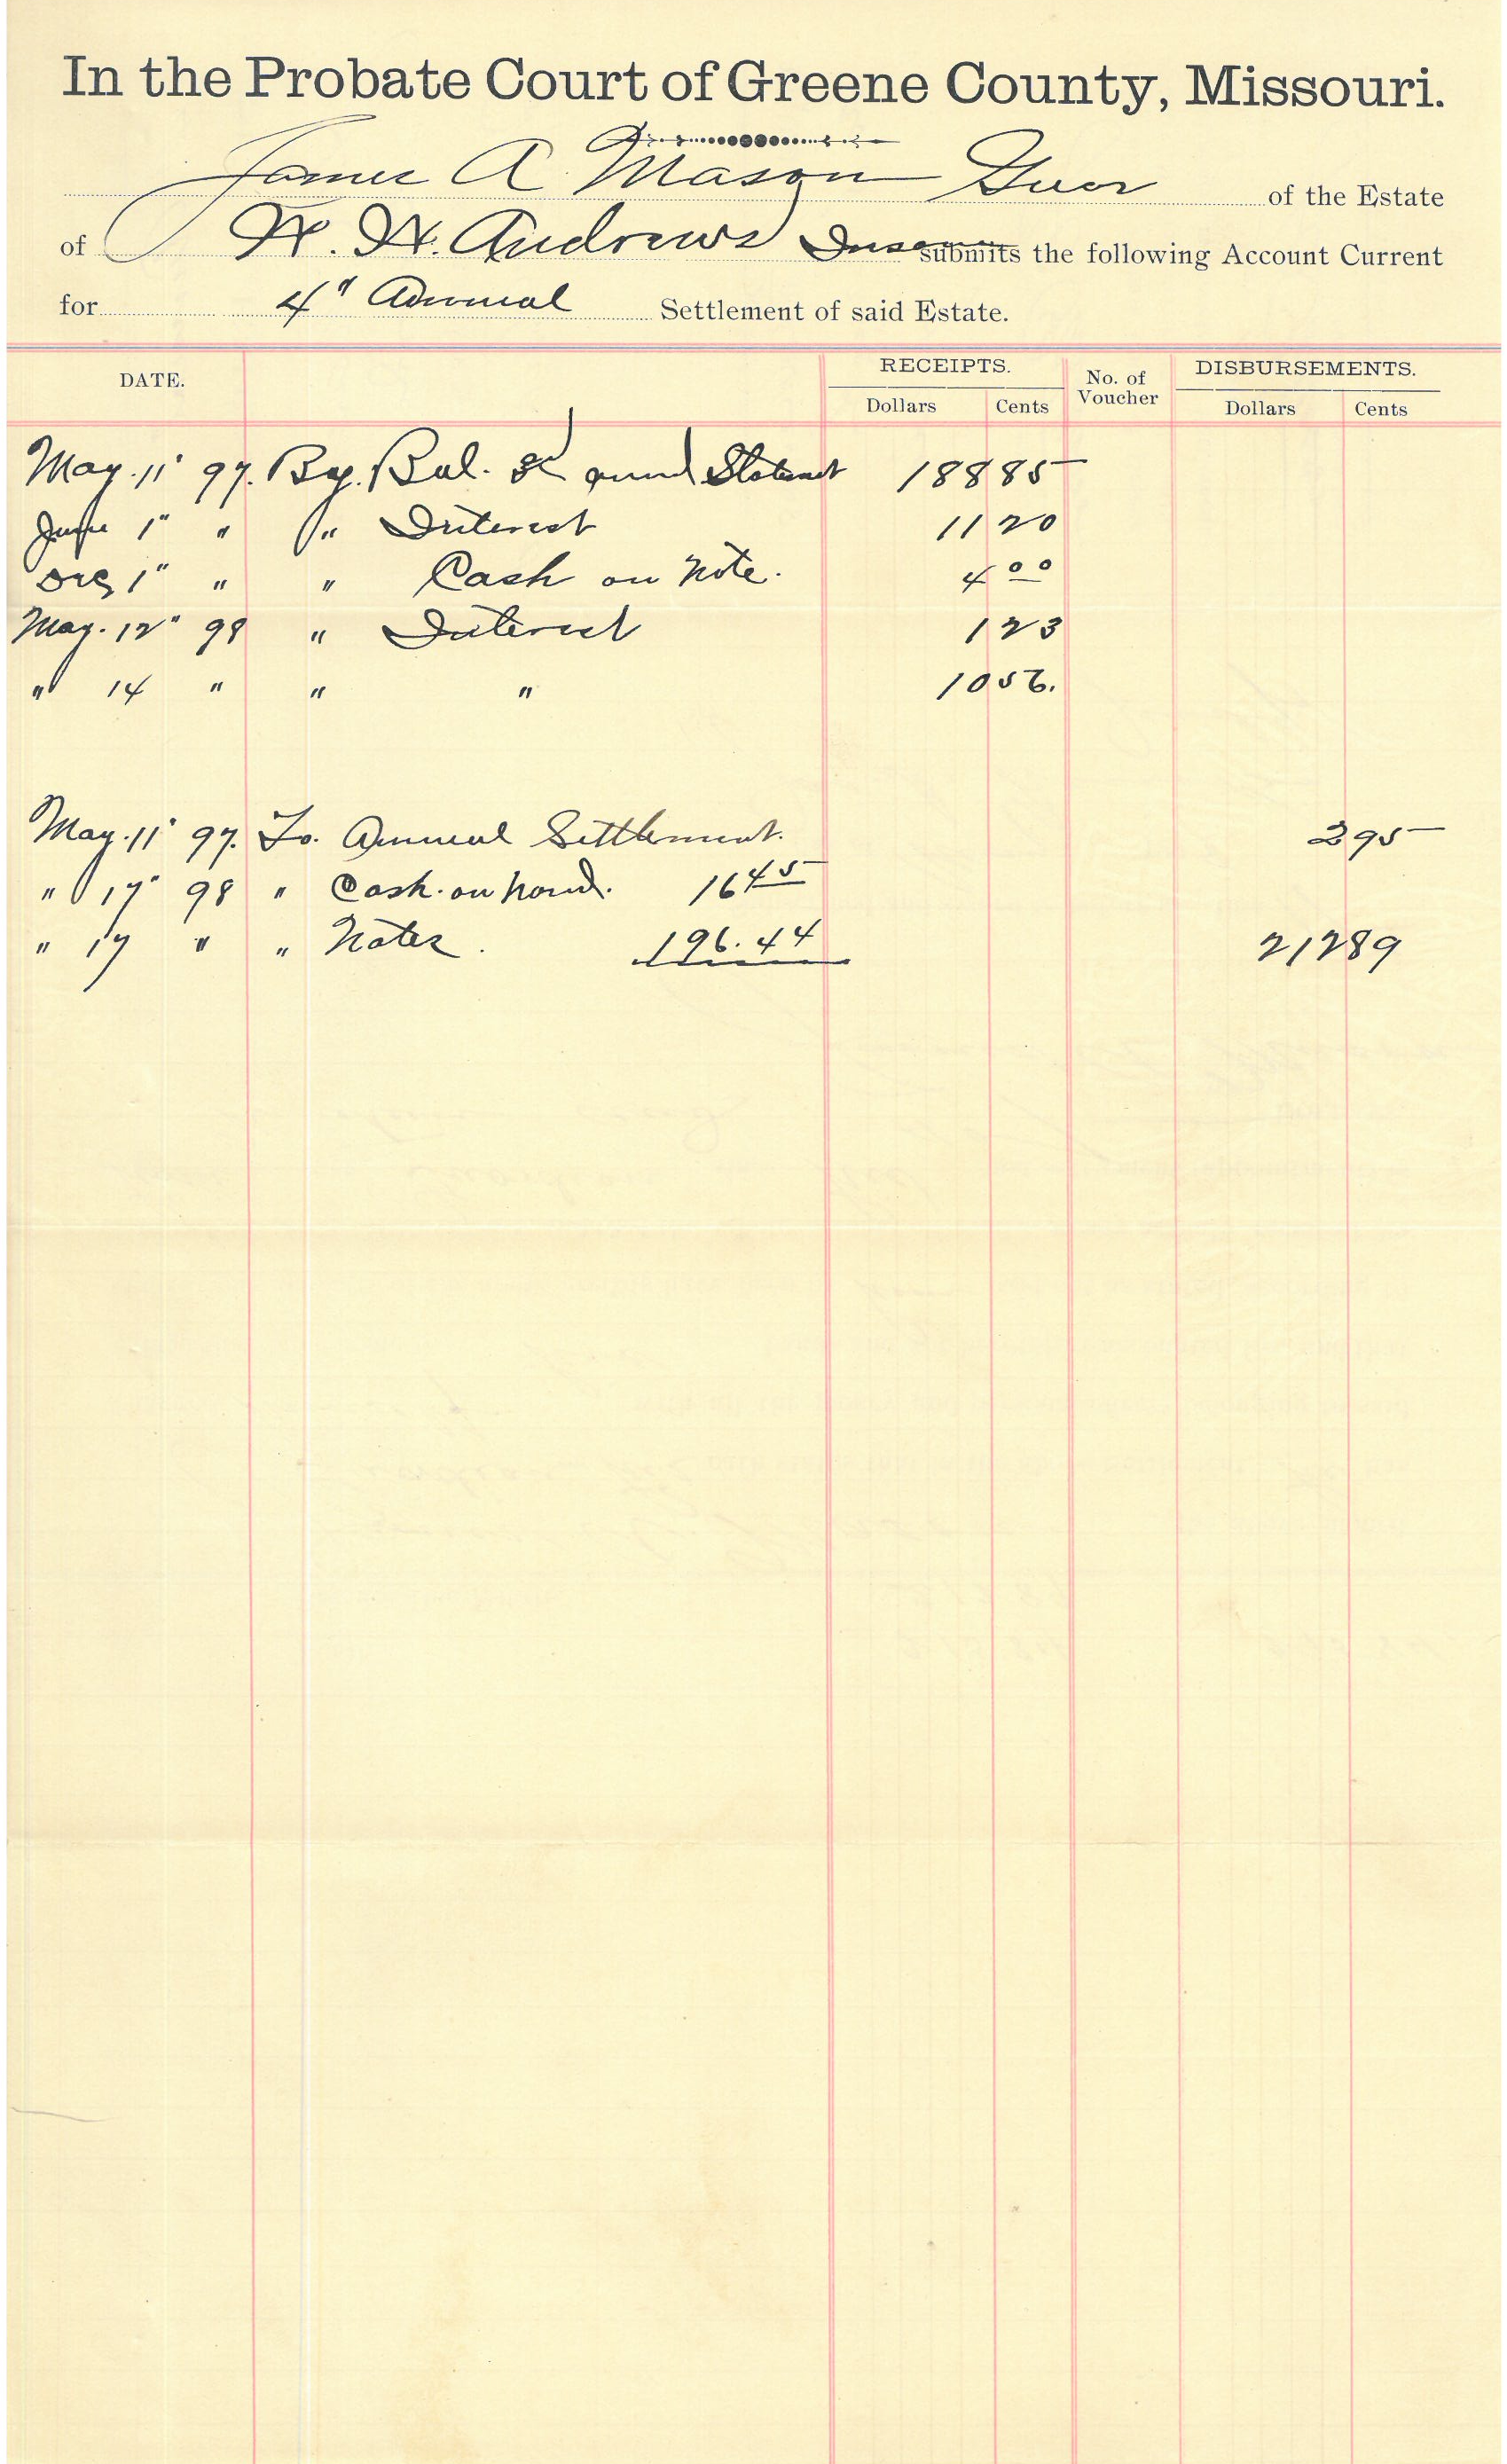 In the Probate Court of Greene County, Missouri.
James A Mason Guar of the Estate
of W. W. Andrews Insane submits the following Account Current
for 4" Annual Settlement of said Estate.
DATE. RECEIPTS. No. of Voucher DISBURSEMENTS.
Dollars Cents Dollars Cents
May. 11" 97. By. Bal. 3d 188 85
June 1" " " Interest 11 20
1" " " Cash on Note. 4 00
May. 12" 98 " Interest 1 23
" 14 " " " 10 56.
May. 11" 97. To. Annual Settlement. 2 95
" 17" 98 " Cash. on hand. 16 45
" 17 " " Notes. 196.44 212 89